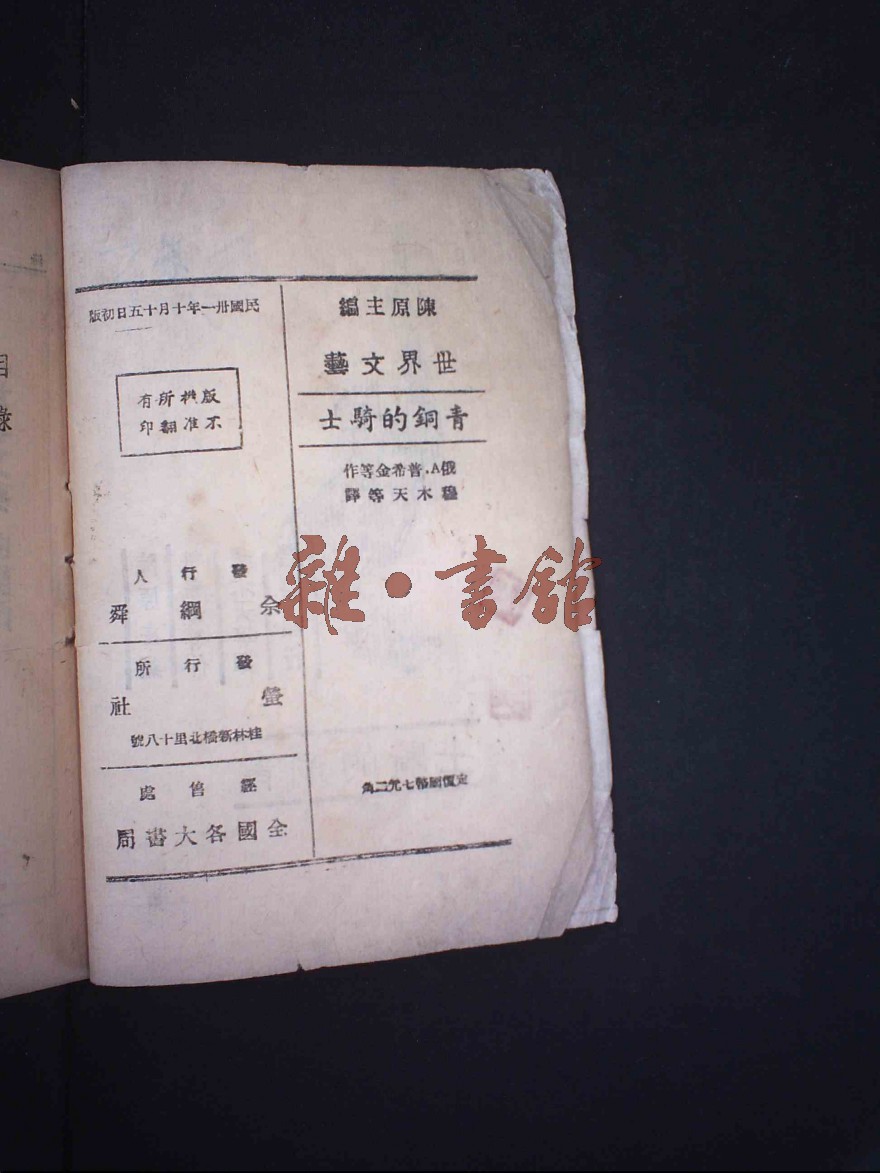 陳原主編
世界文藝
青銅的騎士
俄A.普希金等作
穆木天等譯
定價國幣七元二角
民國卅一年十月十五日初版
版權所有
不准翻印
發行人
佘綱舜
發行所
螢社
桂林新橋北里十八號
經售處
全國各大書局
雜·書館
目
錄